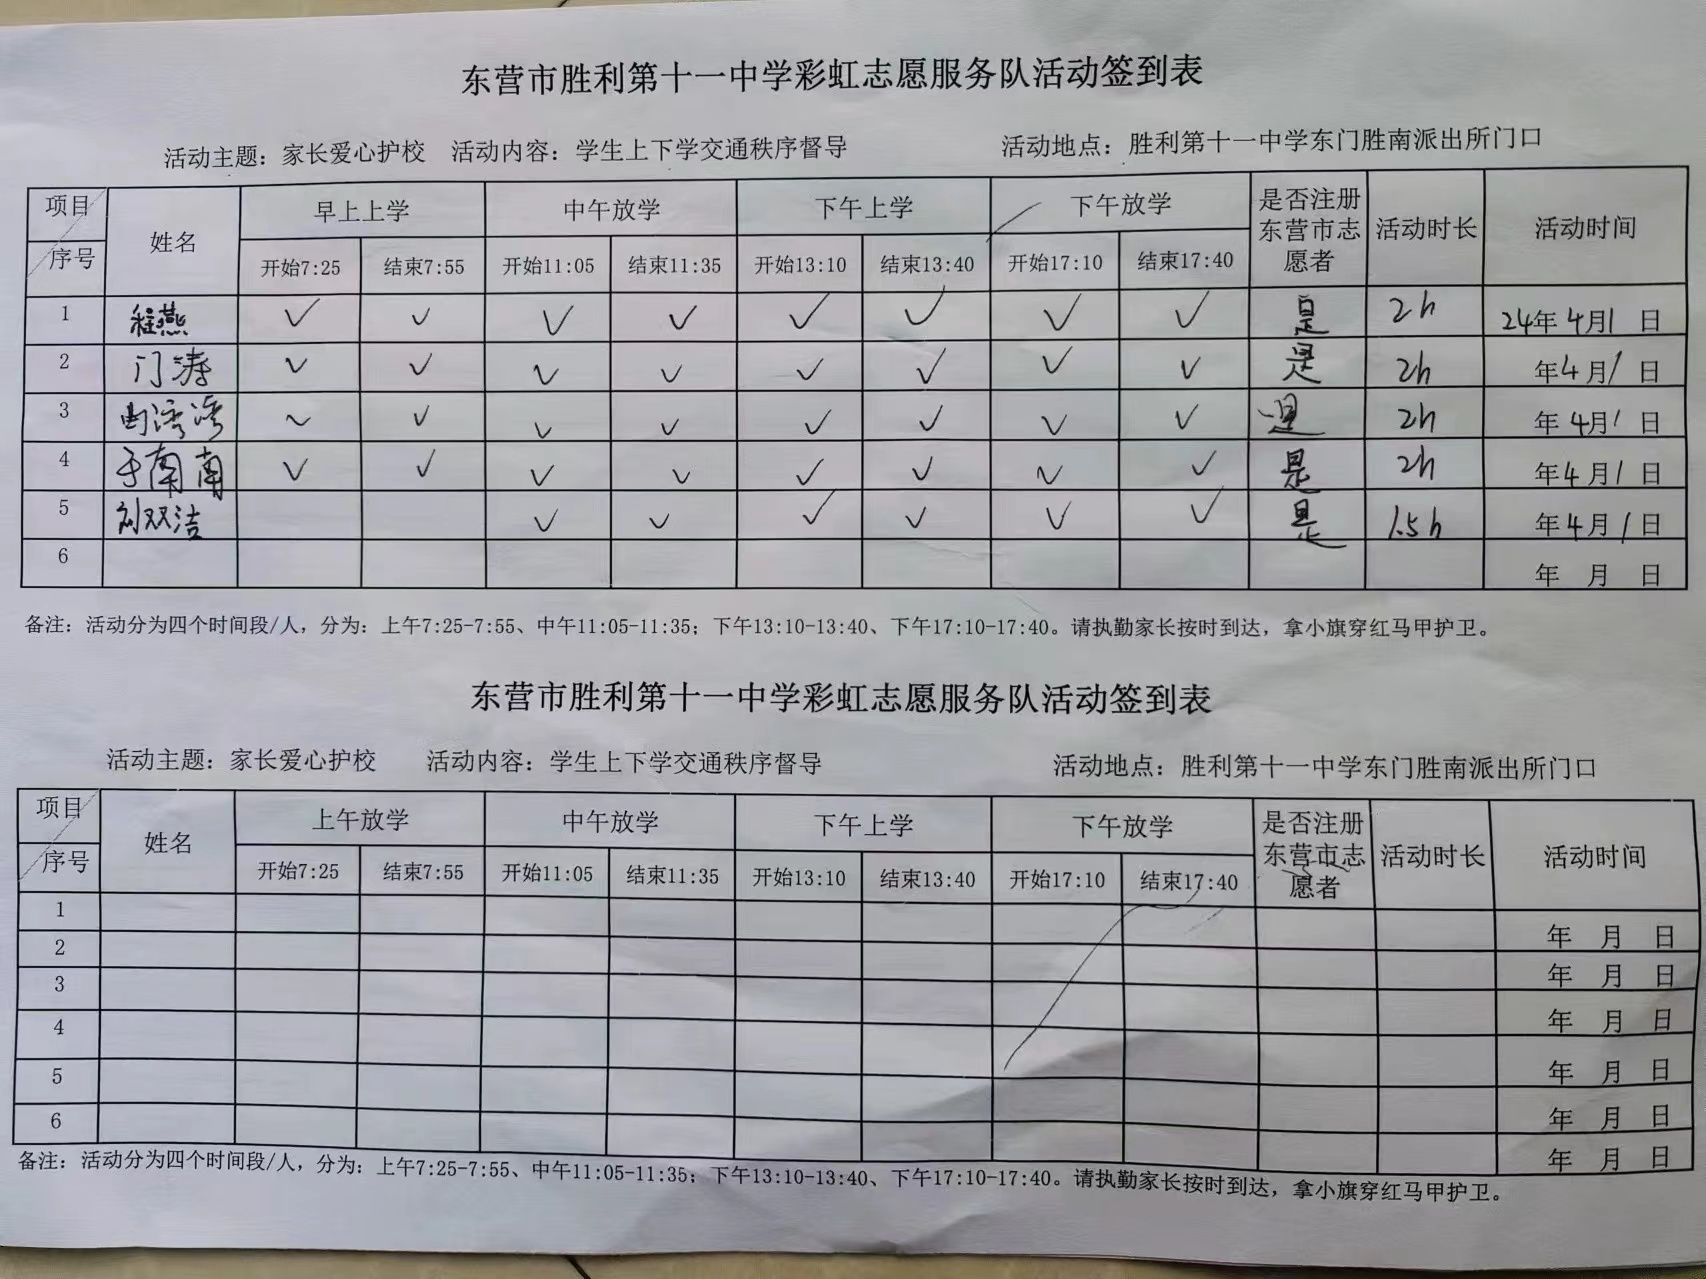 东营市胜利第十一中学彩虹志愿服务队活动签到表
活动主题：家长爱心护校 活动内容：学生上下学交通秩序督导 活动地点：胜利第十一中学东门胜南派出所门口
项目 序号 姓名 早上上学 中午放学 下午上学 下午放学 是否注册东营市志愿者 活动时长 活动时间
开始7:25 结束7:55 开始11:05 结束11:35 开始13:10 结束13:40 开始17:10 结束17:40
1 程燕 ✓ ✓ ✓ ✓ ✓ ✓ ✓ ✓ 是 2h 24年4月1日
2 门涛 ✓ ✓ ✓ ✓ ✓ ✓ ✓ ✓ 是 2h 年4月1日
3 曲湾湾 ✓ ✓ ✓ ✓ ✓ ✓ ✓ ✓ 是 2h 年4月1日
4 于南南 ✓ ✓ ✓ ✓ ✓ ✓ ✓ ✓ 是 2h 年4月1日
5 刘双洁 ✓ ✓ ✓ ✓ ✓ ✓ 是 1.5h 年4月1日
6 年 月 日
备注：活动分为四个时间段/人，分为：上午7:25-7:55、中午11:05-11:35；下午13:10-13:40、下午17:10-17:40。请执勤家长按时到达，拿小旗穿红马甲护卫。
东营市胜利第十一中学彩虹志愿服务队活动签到表
活动主题：家长爱心护校 活动内容：学生上下学交通秩序督导 活动地点：胜利第十一中学东门胜南派出所门口
项目 序号 姓名 上午放学 中午放学 下午上学 下午放学 是否注册东营市志愿者 活动时长 活动时间
开始7:25 结束7:55 开始11:05 结束11:35 开始13:10 结束13:40 开始17:10 结束17:40
1 年 月 日
2 年 月 日
3 年 月 日
4 年 月 日
5 年 月 日
6 年 月 日
备注：活动分为四个时间段/人，分为：上午7:25-7:55、中午11:05-11:35；下午13:10-13:40、下午17:10-17:40。请执勤家长按时到达，拿小旗穿红马甲护卫。